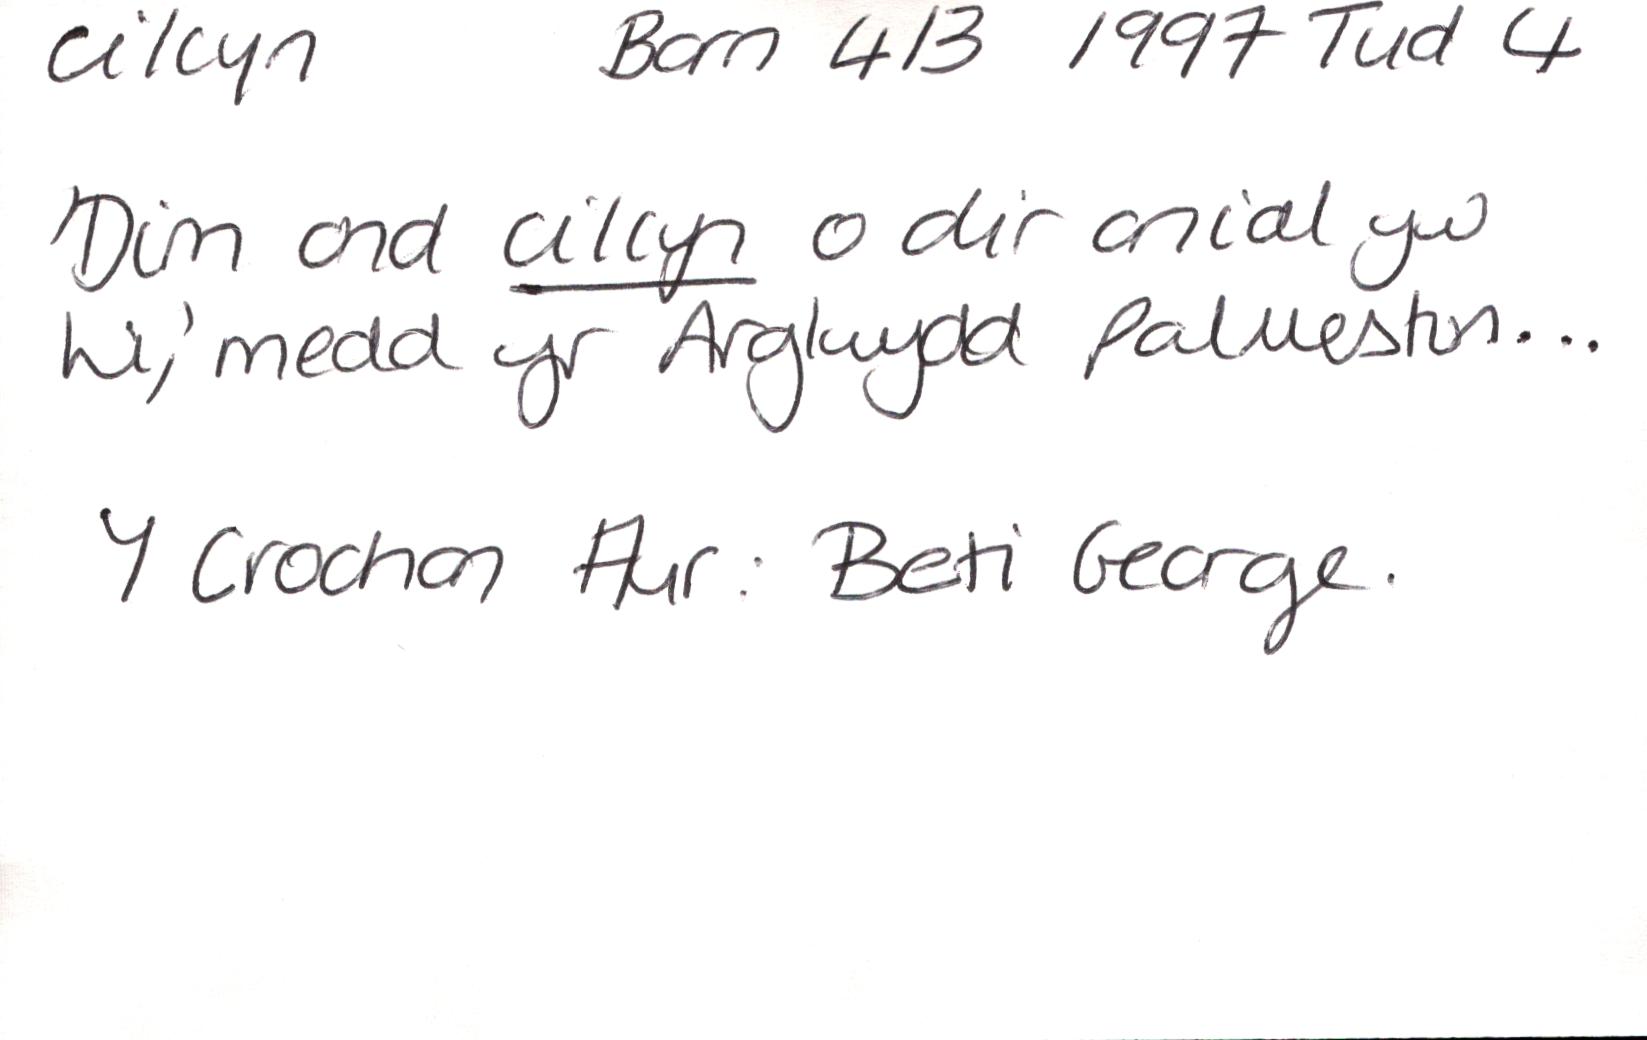 cilcyn Barn 413 1997 Tud 4
'Dim ond cilcyn o dir anial yw
hi,' medd yr Arglwydd Palmeston...
Y Crochan Aur: Beti George.